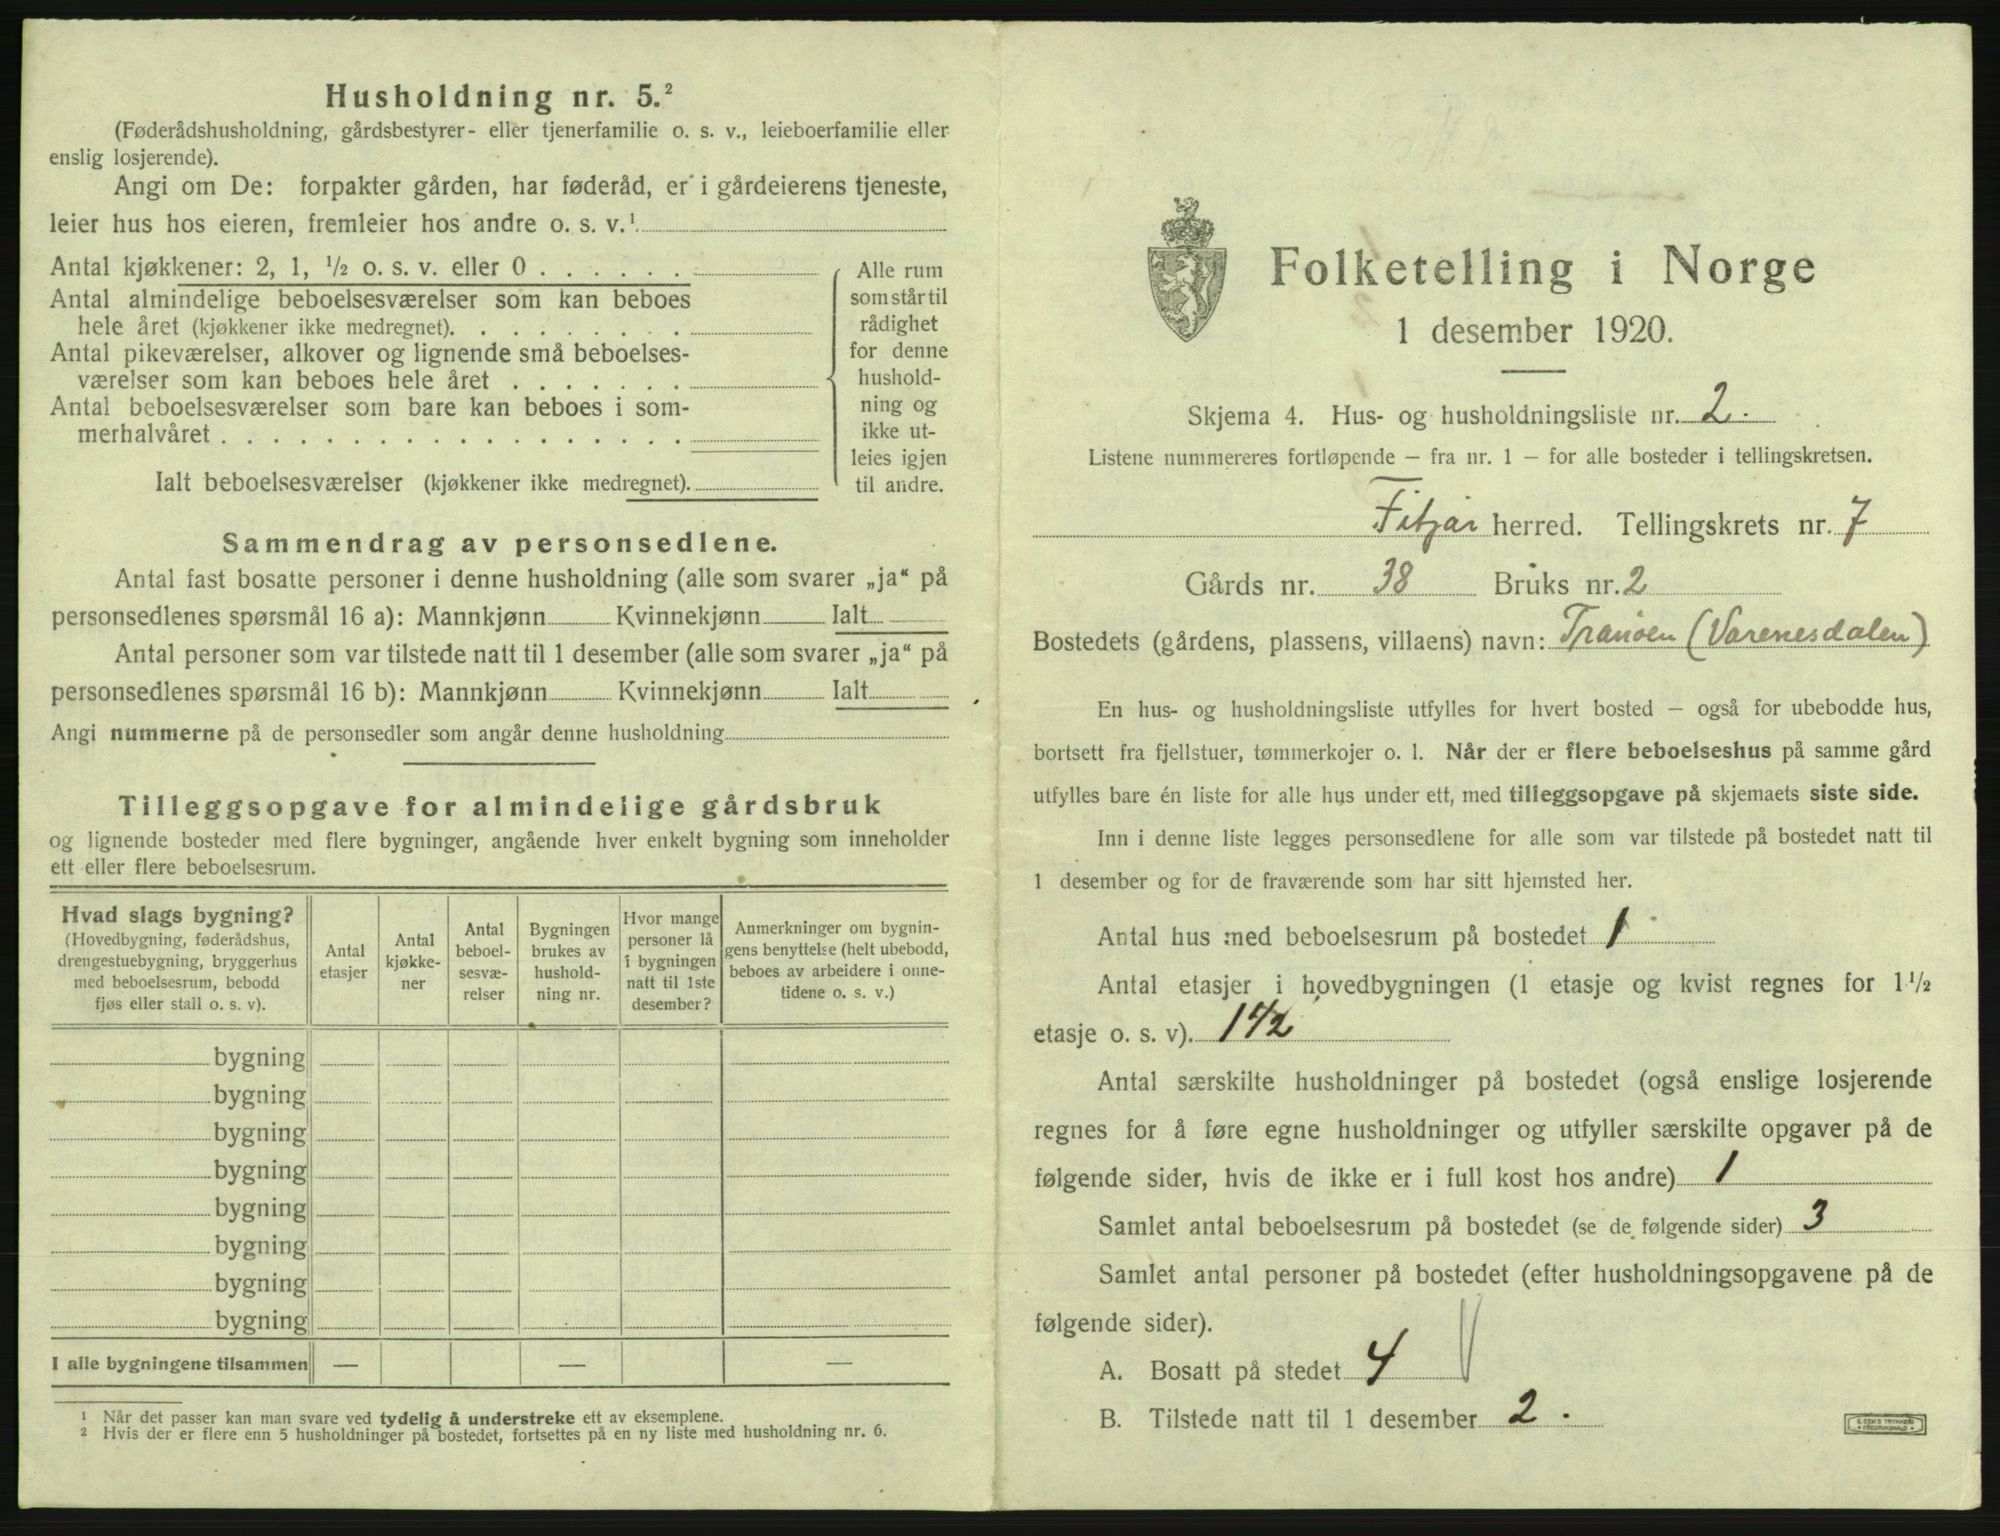 Husholdning nr. 5.²
(Føderådshusholdning, gårdsbestyrer- eller tjenerfamilie o. s. v., leieboerfamilie eller
enslig losjerende).
Angi om De: forpakter gården, har føderåd, er i gårdeierens tjeneste,
leier hus hos eieren, fremleier hos andre o. s. v.¹
Antal kjøkkener: 2, 1, ½ o. s. v. eller 0 . . . . . .
Antal almindelige beboelsesværelser som kan beboes
hele året (kjøkkener ikke medregnet). . . . . . . . .
Antal pikeværelser, alkover og lignende små beboelses-
værelser som kan beboes hele året . . . . . . .
Antal beboelsesværelser som bare kan beboes i som-
merhalvåret . . . . . . . . . . . . . . . . . .
Ialt beboelsesværelser (kjøkkener ikke medregnet).
Alle rum
som står til
rådighet
for denne
hushold-
ning og
ikke ut-
leies igjen
til andre.
Sammendrag av personsedlene.
Antal fast bosatte personer i denne husholdning (alle som svarer „ja“ på
personsedlenes spørsmål 16 a): Mannkjønn Kvinnekjønn Ialt
Antal personer som var tilstede natt til 1 desember (alle som svarer „ja“ på
personsedlenes spørsmål 16 b): Mannkjønn Kvinnekjønn Ialt
Angi nummerne på de personsedler som angår denne husholdning
Tilleggsopgave for almindelige gårdsbruk
og lignende bosteder med flere bygninger, angående hver enkelt bygning som inneholder
ett eller flere beboelsesrum.
Hvad slags bygning?
(Hovedbygning, føderådshus,
drengestuebygning, bryggerhus
med beboelsesrum, bebodd
fjøs eller stall o. s. v).
Antal
etasjer
Antal
kjøkke-
ner
Antal
beboel-
sesvæ-
relser
Bygningen
brukes av
hushold-
ning nr.
Hvor mange
personer lå
i bygningen
natt til 1ste
desember?
Anmerkninger om bygnin-
gens benyttelse (helt ubebodd,
beboes av arbeidere i onne-
tidene o. s. v.)
bygning
bygning
bygning
bygning
bygning
bygning
bygning
bygning
I alle bygningene tilsammen — — —
¹ Når det passer kan man svare ved tydelig å understreke ett av eksemplene.
² Hvis der er flere enn 5 husholdninger på bostedet, fortsettes på en ny liste med husholdning nr. 6.
Folketelling i Norge
1 desember 1920.
Skjema 4. Hus- og husholdningsliste nr. 2.
Listene nummereres fortløpende – fra nr. 1 – for alle bosteder i tellingskretsen.
Fitjar herred. Tellingskrets nr. 7
Gårds nr. 38 Bruks nr. 2
Bostedets (gårdens, plassens, villaens) navn: Tranøen (Varenesdalen)
En hus- og husholdningsliste utfylles for hvert bosted – også for ubebodde hus,
bortsett fra fjellstuer, tømmerkojer o. l. Når der er flere beboelseshus på samme gård
utfylles bare én liste for alle hus under ett, med tilleggsopgave på skjemaets siste side.
Inn i denne liste legges personsedlene for alle som var tilstede på bostedet natt til
1 desember og for de fraværende som har sitt hjemsted her.
Antal hus med beboelsesrum på bostedet 1
Antal etasjer i hovedbygningen (1 etasje og kvist regnes for 1½
etasje o. s. v). 1½
Antal særskilte husholdninger på bostedet (også enslige losjerende
regnes for å føre egne husholdninger og utfyller særskilte opgaver på de
følgende sider, hvis de ikke er i full kost hos andre) 1
Samlet antal beboelsesrum på bostedet (se de følgende sider) 3
Samlet antal personer på bostedet (efter husholdningsopgavene på de
følgende sider).
A. Bosatt på stedet 4
B. Tilstede natt til 1 desember 2.